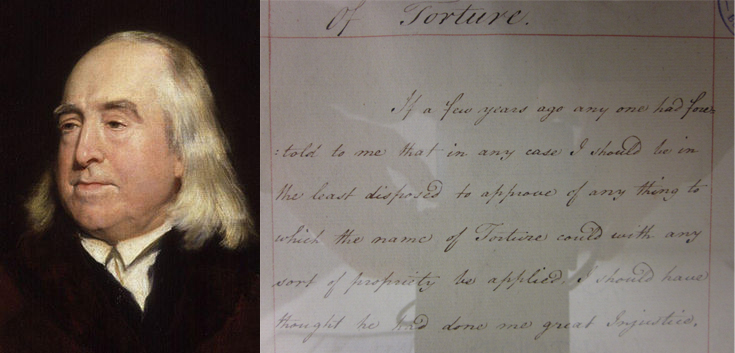 Of Torture.
If a few years ago any one had fore=
=told to me that in any case I should be in
the least disposed to approve of any thing to
which the name of Torture could with any
sort of propriety be applied, I should have
thought he had done me great Injustice.